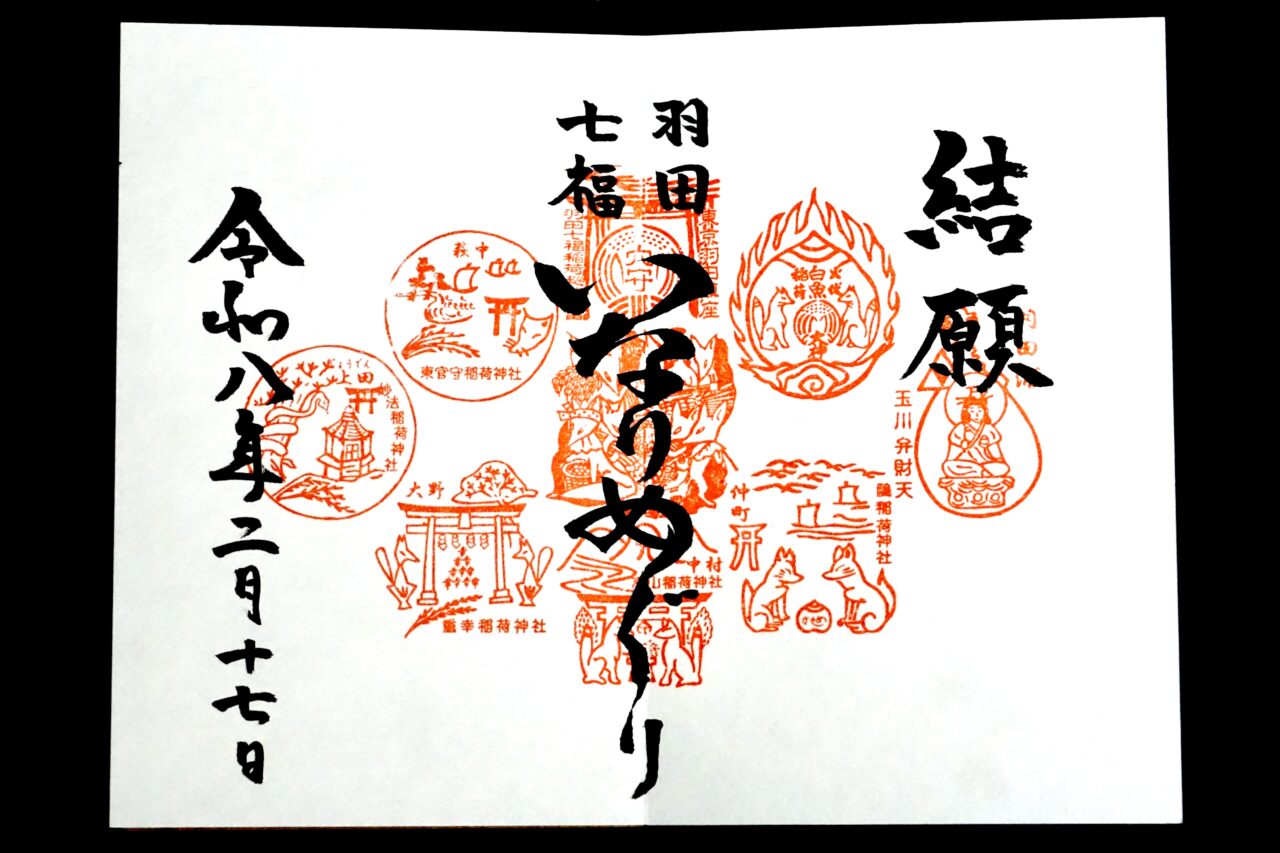 結願
羽田
七福
いなりめぐり
令和八年二月十七日
玉川弁財天
白魚
稲荷
大坪
鴎稲荷神社
仲町
東京羽田
羽田七福稲荷
穴守
中村
山稲荷神社
萩中
東官守稲荷神社
大野
重幸稲荷神社
上田
妙法稲荷神社